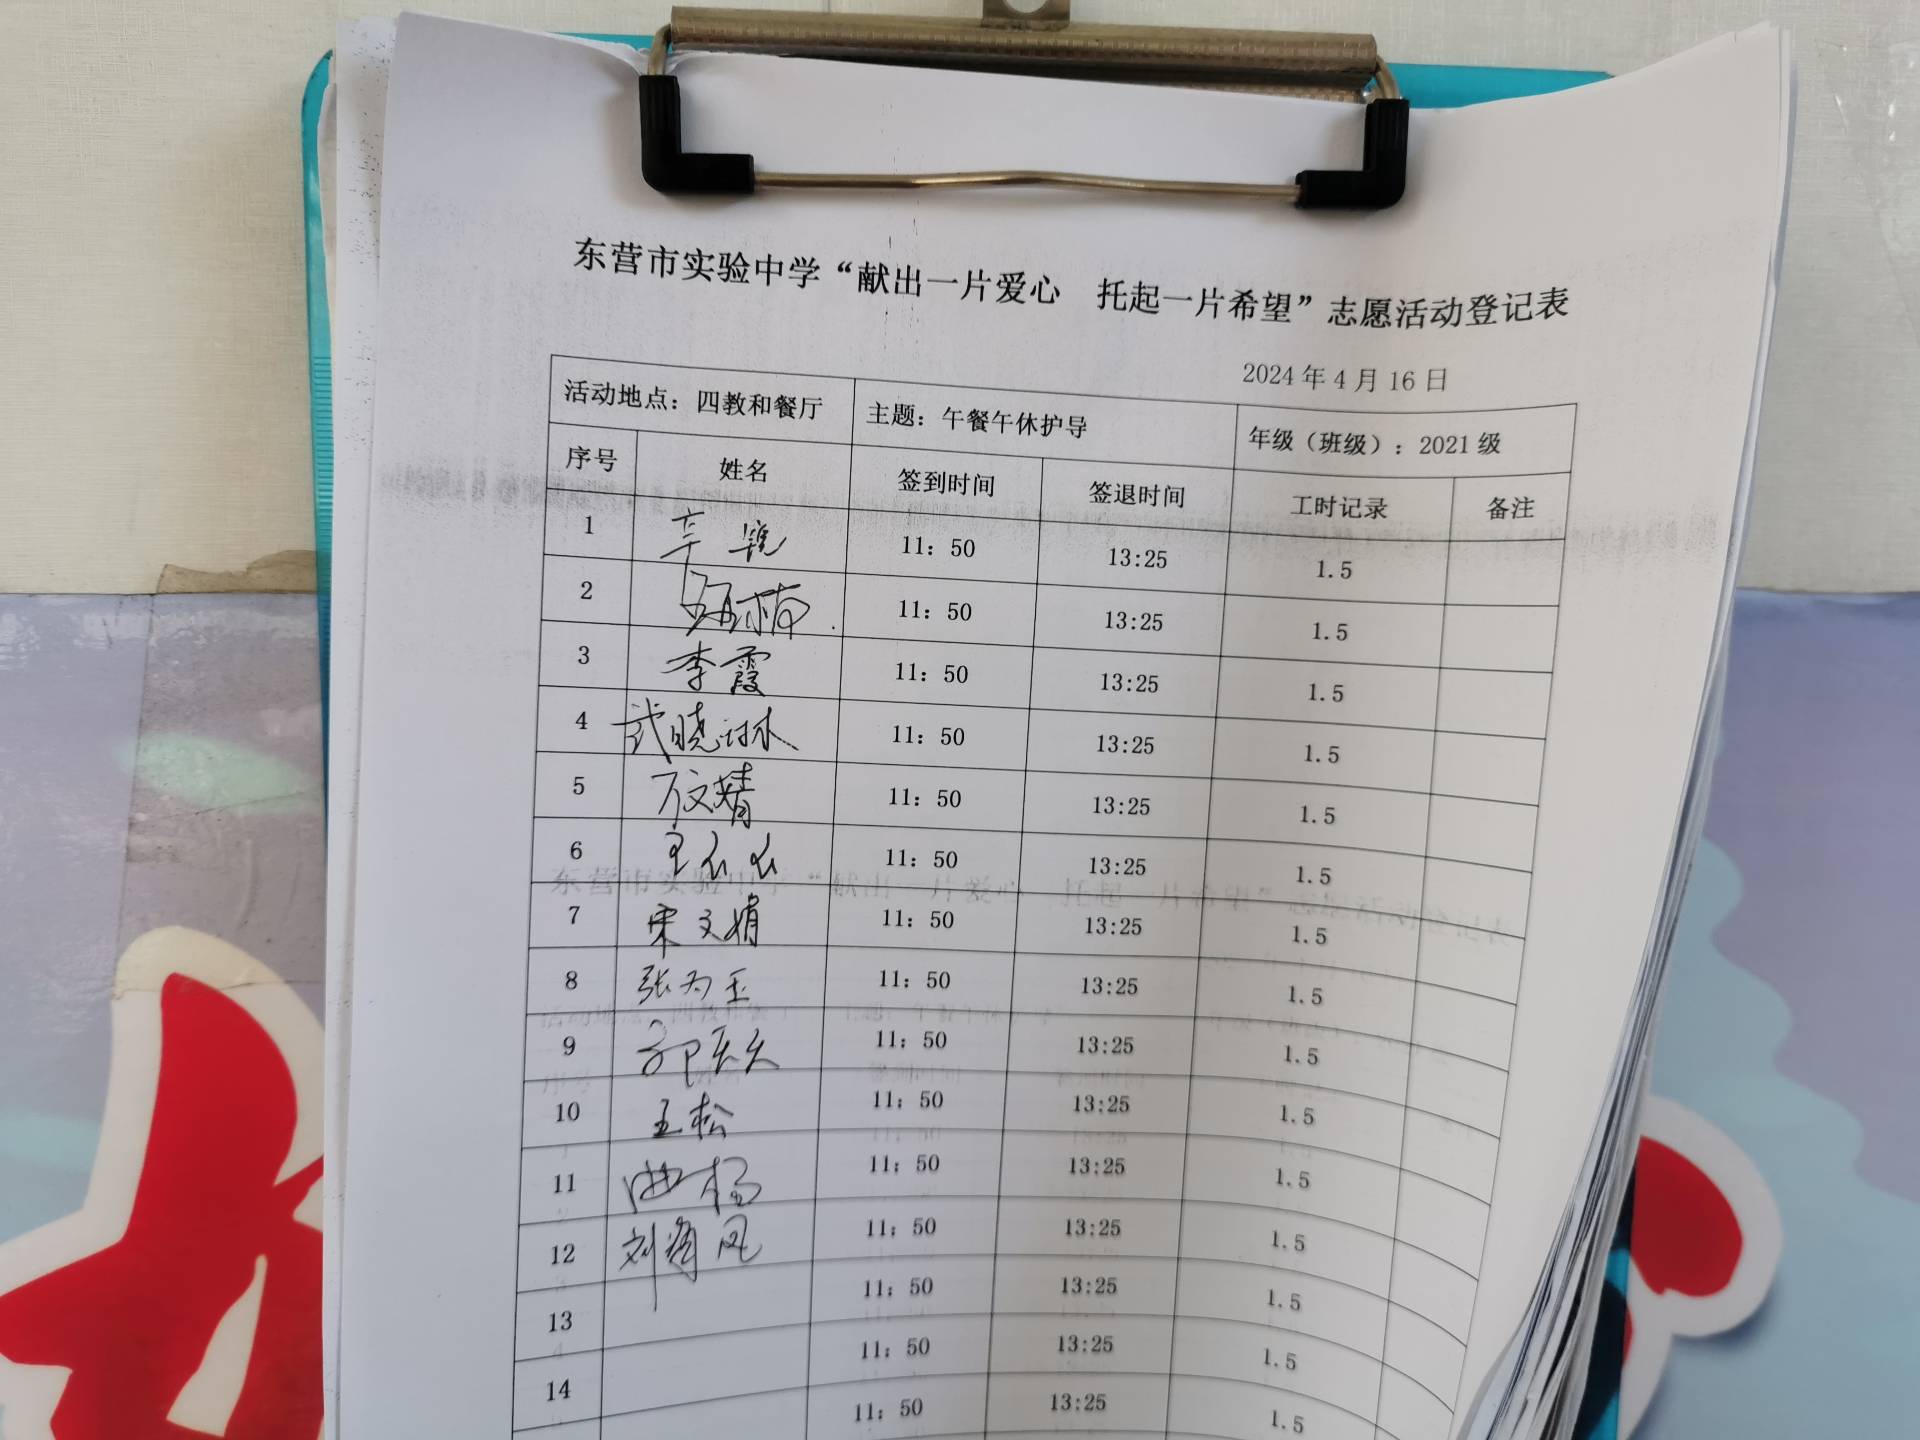 东营市实验中学“献出一片爱心 托起一片希望”志愿活动登记表
2024年4月16日
活动地点：四教和餐厅 主题：午餐午休护导 年级（班级）：2021级
序号 姓名 签到时间 签退时间 工时记录 备注
1 辛 11：50 13:25 1.5
2 11：50 13:25 1.5
3 李霞 11：50 13:25 1.5
4 武晓琳 11：50 13:25 1.5
5 11：50 13:25 1.5
6 11：50 13:25 1.5
7 宋文娟 11：50 13:25 1.5
8 张为玉 11：50 13:25 1.5
9 郭 11：50 13:25 1.5
10 王松 11：50 13:25 1.5
11 曲杨 11：50 13:25 1.5
12 刘 凤 11：50 13:25 1.5
13 11：50 13:25 1.5
14 11：50 13:25 1.5
11：50 13:25 1.5